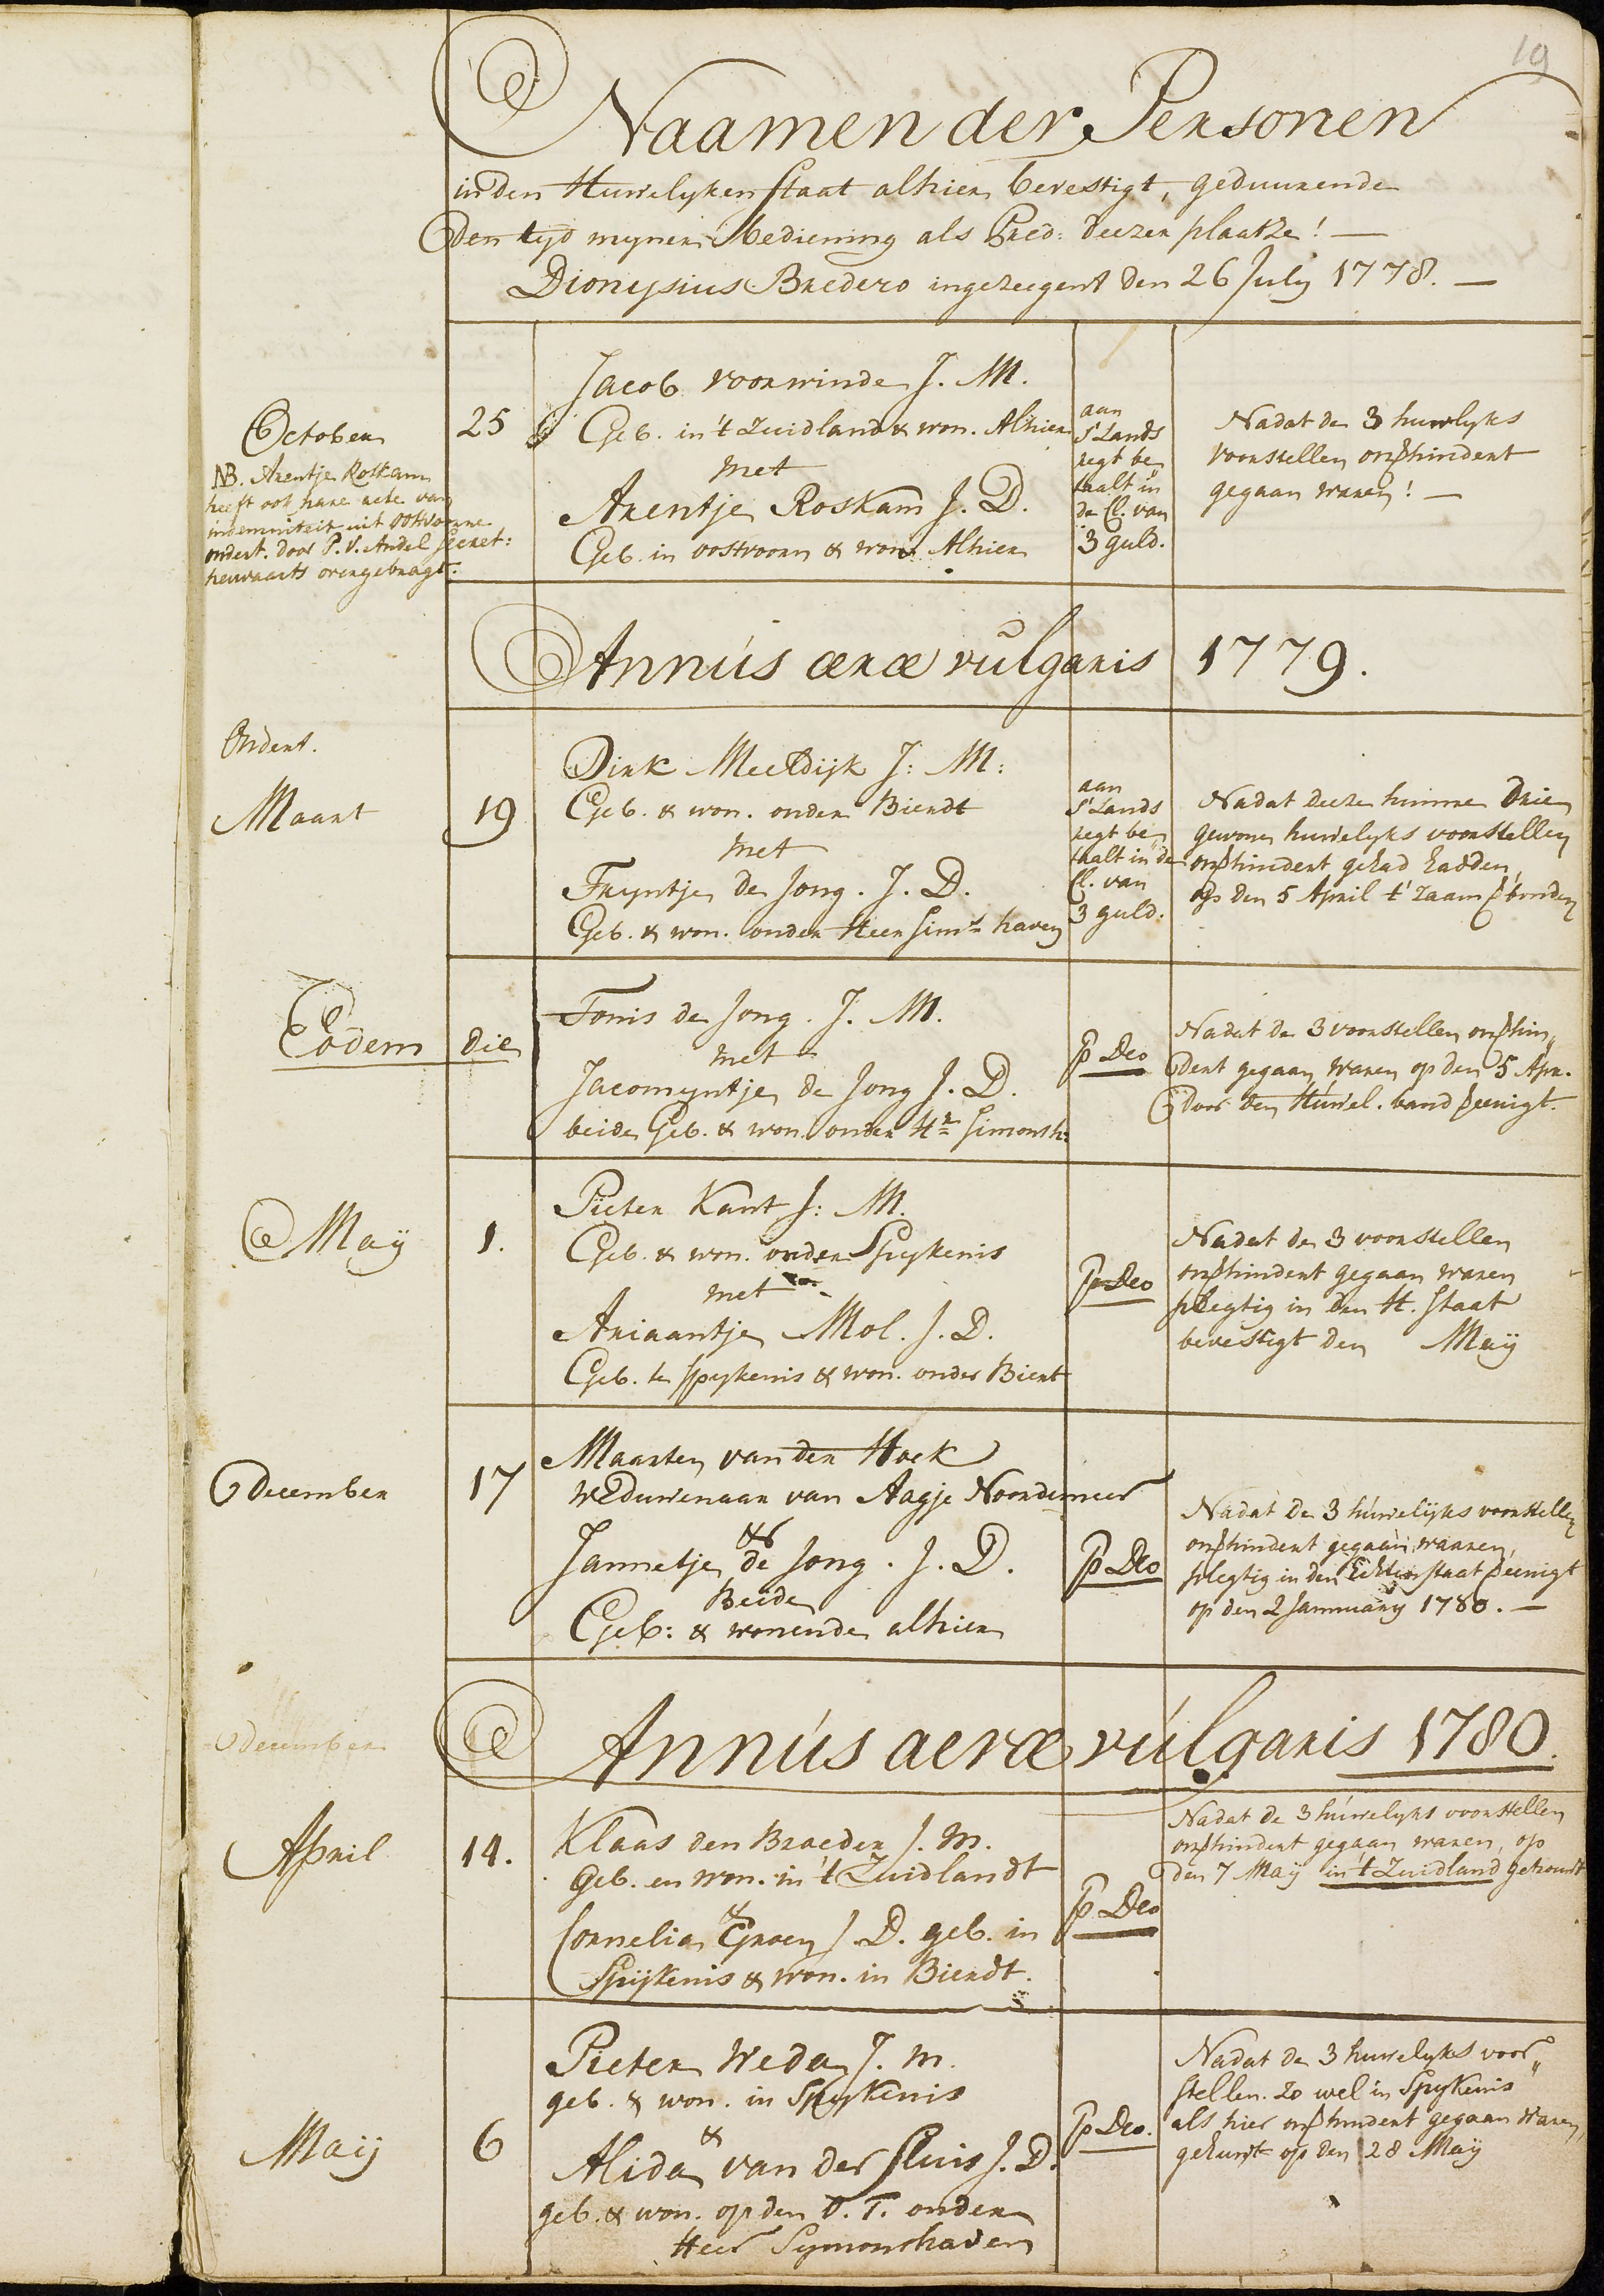 19
Naamen der Personen
in den Huwelyken Staat alhier bevestigt, geduurende
den tyd myner bediening als Pred: deezer plaatze! —
Dionysius Bredero ingezeegent den 26 July 1778. —
October
NB. Arentje Roskam
heeft ook hare acte van
indemniteit uit Ostvoorne
ondert. door P. V. Andel Secret:
herwaarts overgebragt.
25
Jacob voorwinde J. M.
Geb. in 't Zuidland & won. Alhier
met
Arentje Roskam J. D.
Geb. in oostvoorn & won. Alhier
aan
S'Lands
regt be„
taalt in
de Cl. van
3 guld.
Nadat de 3 huwlyks
voorstellen onverhindert
gegaan waren! —
Annus æræ vulgaris 1779.
Ondert.
Maart
19
Dirk Meeldijk J: M:
Geb. & won. onder Bierdt
met
Fryntje de Jong. J. D.
Geb. & won. onder Heer Sims haven
aan
S'Lands
regt be„
taalt in de
Cl. van
3 guld.
Nadat deeze hunne drie
gewone huwelyks voorstellen
onverhindert gehad hadden,
op den 5 April t'zaam verbonden
Eodem die
Tonis de Jong. J. M.
met
Jacomyntje de Jong J. D.
beide Geb. & won. onder Hr Simonsh:
p Deo
Nadat de 3 voorstellen onverhin„
dert gegaan waren op den 5 Apr.
door den Huwel. band vereenigt.
May
1.
Pieter Kant J: M.
Geb. & won. onder Spykenis
met
Ariaantje Mol. J. D.
Geb. te Spykenis & won. onder Biert
p Deo
Nadat de 3 voorstellen
onverhindert gegaan waren
plegtig in den H. Staat
bevestigt den May
December
17
Maarten van der Hoek
Weduwenaar van Aagje Noordermeer
&
Jannetje de Jong. J. D.
Beide
Geb: & wonende alhier
p Deo
Nadat de 3 huwelijks voorstellen
onverhindert gegaan waaren,
plegtig in den Echten staat vereenigt
op den 2 January 1780. —
December
Annus aeræ vulgaris 1780.
April
14.
Klaas den Braeder J. M.
Geb. en won. in 't Zuidlandt
&
Cornelia Groen J. D. geb. in
Spijkenis & won. in Bierdt.
p Deo
Nadat de 3 huwelyks voorstellen
onverhindert gegaan waren, op
den 7 May in 't Zuidland getrouwt
Maij
6
Pieter Weda J. m.
geb. & won. in Spykenis
&
Alida van der Sluis J. D.
geb. & won. op den O. T. onder
Heer Symonshaven
p Deo.
Nadat de 3 huwelyks voor„
stellen. zo wel in Spykenis
als hier onverhindert gegaan waren,
getrouwt op den 28 May